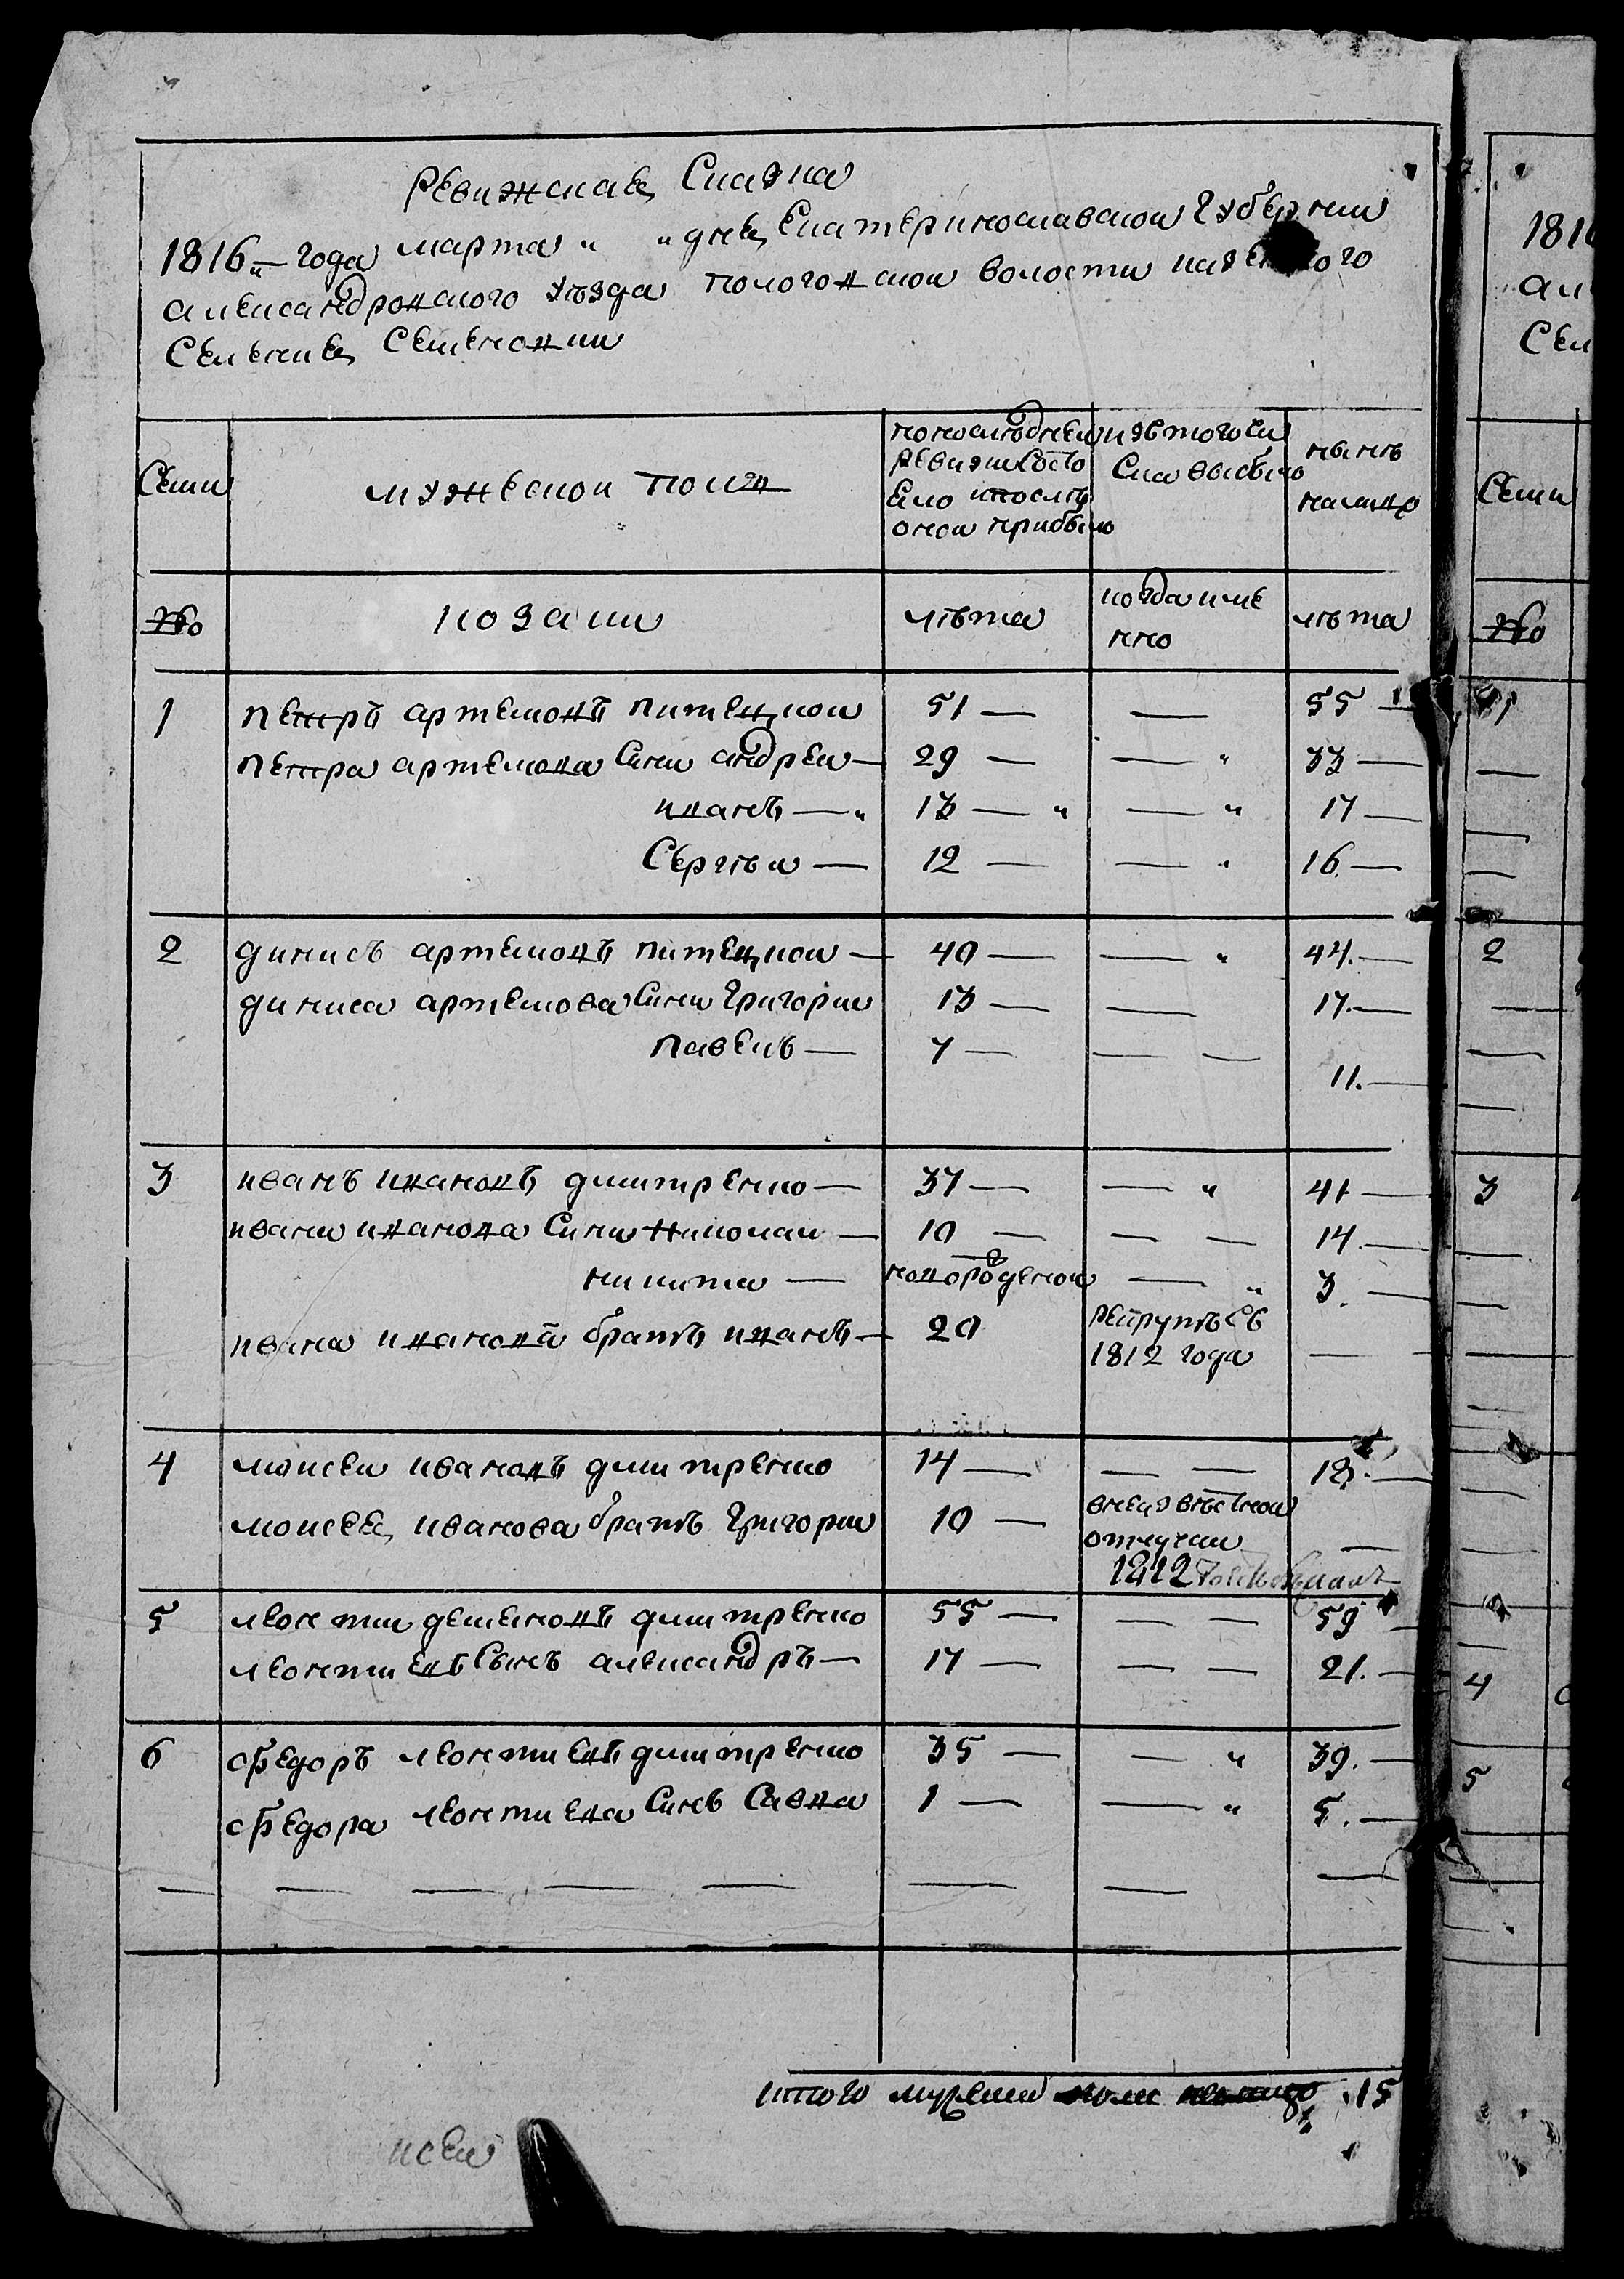 Ревижская Сказка
1816 года марта " " дня Екатеринославской Губернии
александровского уезда пологовской волости казенного
Селения Семеновки
Семи
мужескои полъ
по последнеи ревизии состояло и после онои прибыло
изътого числа выбыло
ныне налицо
№
козаки
лѣта
когда именно
лѣта
1 петръ артемовъ питецкои 51 — — 55 —
петра артемова Сини андреи — 29 — — " 33 —
иванъ — " 13 — " — " 17 —
Сергѣи — 12 — — " 16. —
2 динисъ артемовъ питецкои — 40 — — " 44. —
диниса артемова Сини Григории 13 — — 17. —
павелъ — 7 — — — 11. —
3 иванъ ивановъ дмитренко — 37 — — " 41 —
ивана иванова Сини Николаи — 10 — — — 14. —
никита — новорожденои — " 3. —
ивана иванова братъ иванъ — 20 рекрутъ съ —
1812 года
4 моисеи ивановъ дмитренко 14 — — — 18. —
моисея иванова братъ Григории 10 — внеизвестнои —
отлучки
1812
5 леонтии деменовъ дмитренко 55 — — — 59 —
леонтиевъ Сынъ александръ — 17 — — — 21. —
6 федоръ леонтиевъ дмитренко 35 — — " 39. —
федора леонтиева Синъ Савва 1 — — " 5. —
— — — — — — — —
итого мужеска пола налицо 15
1816
Семи
№
1
2
3
4
5